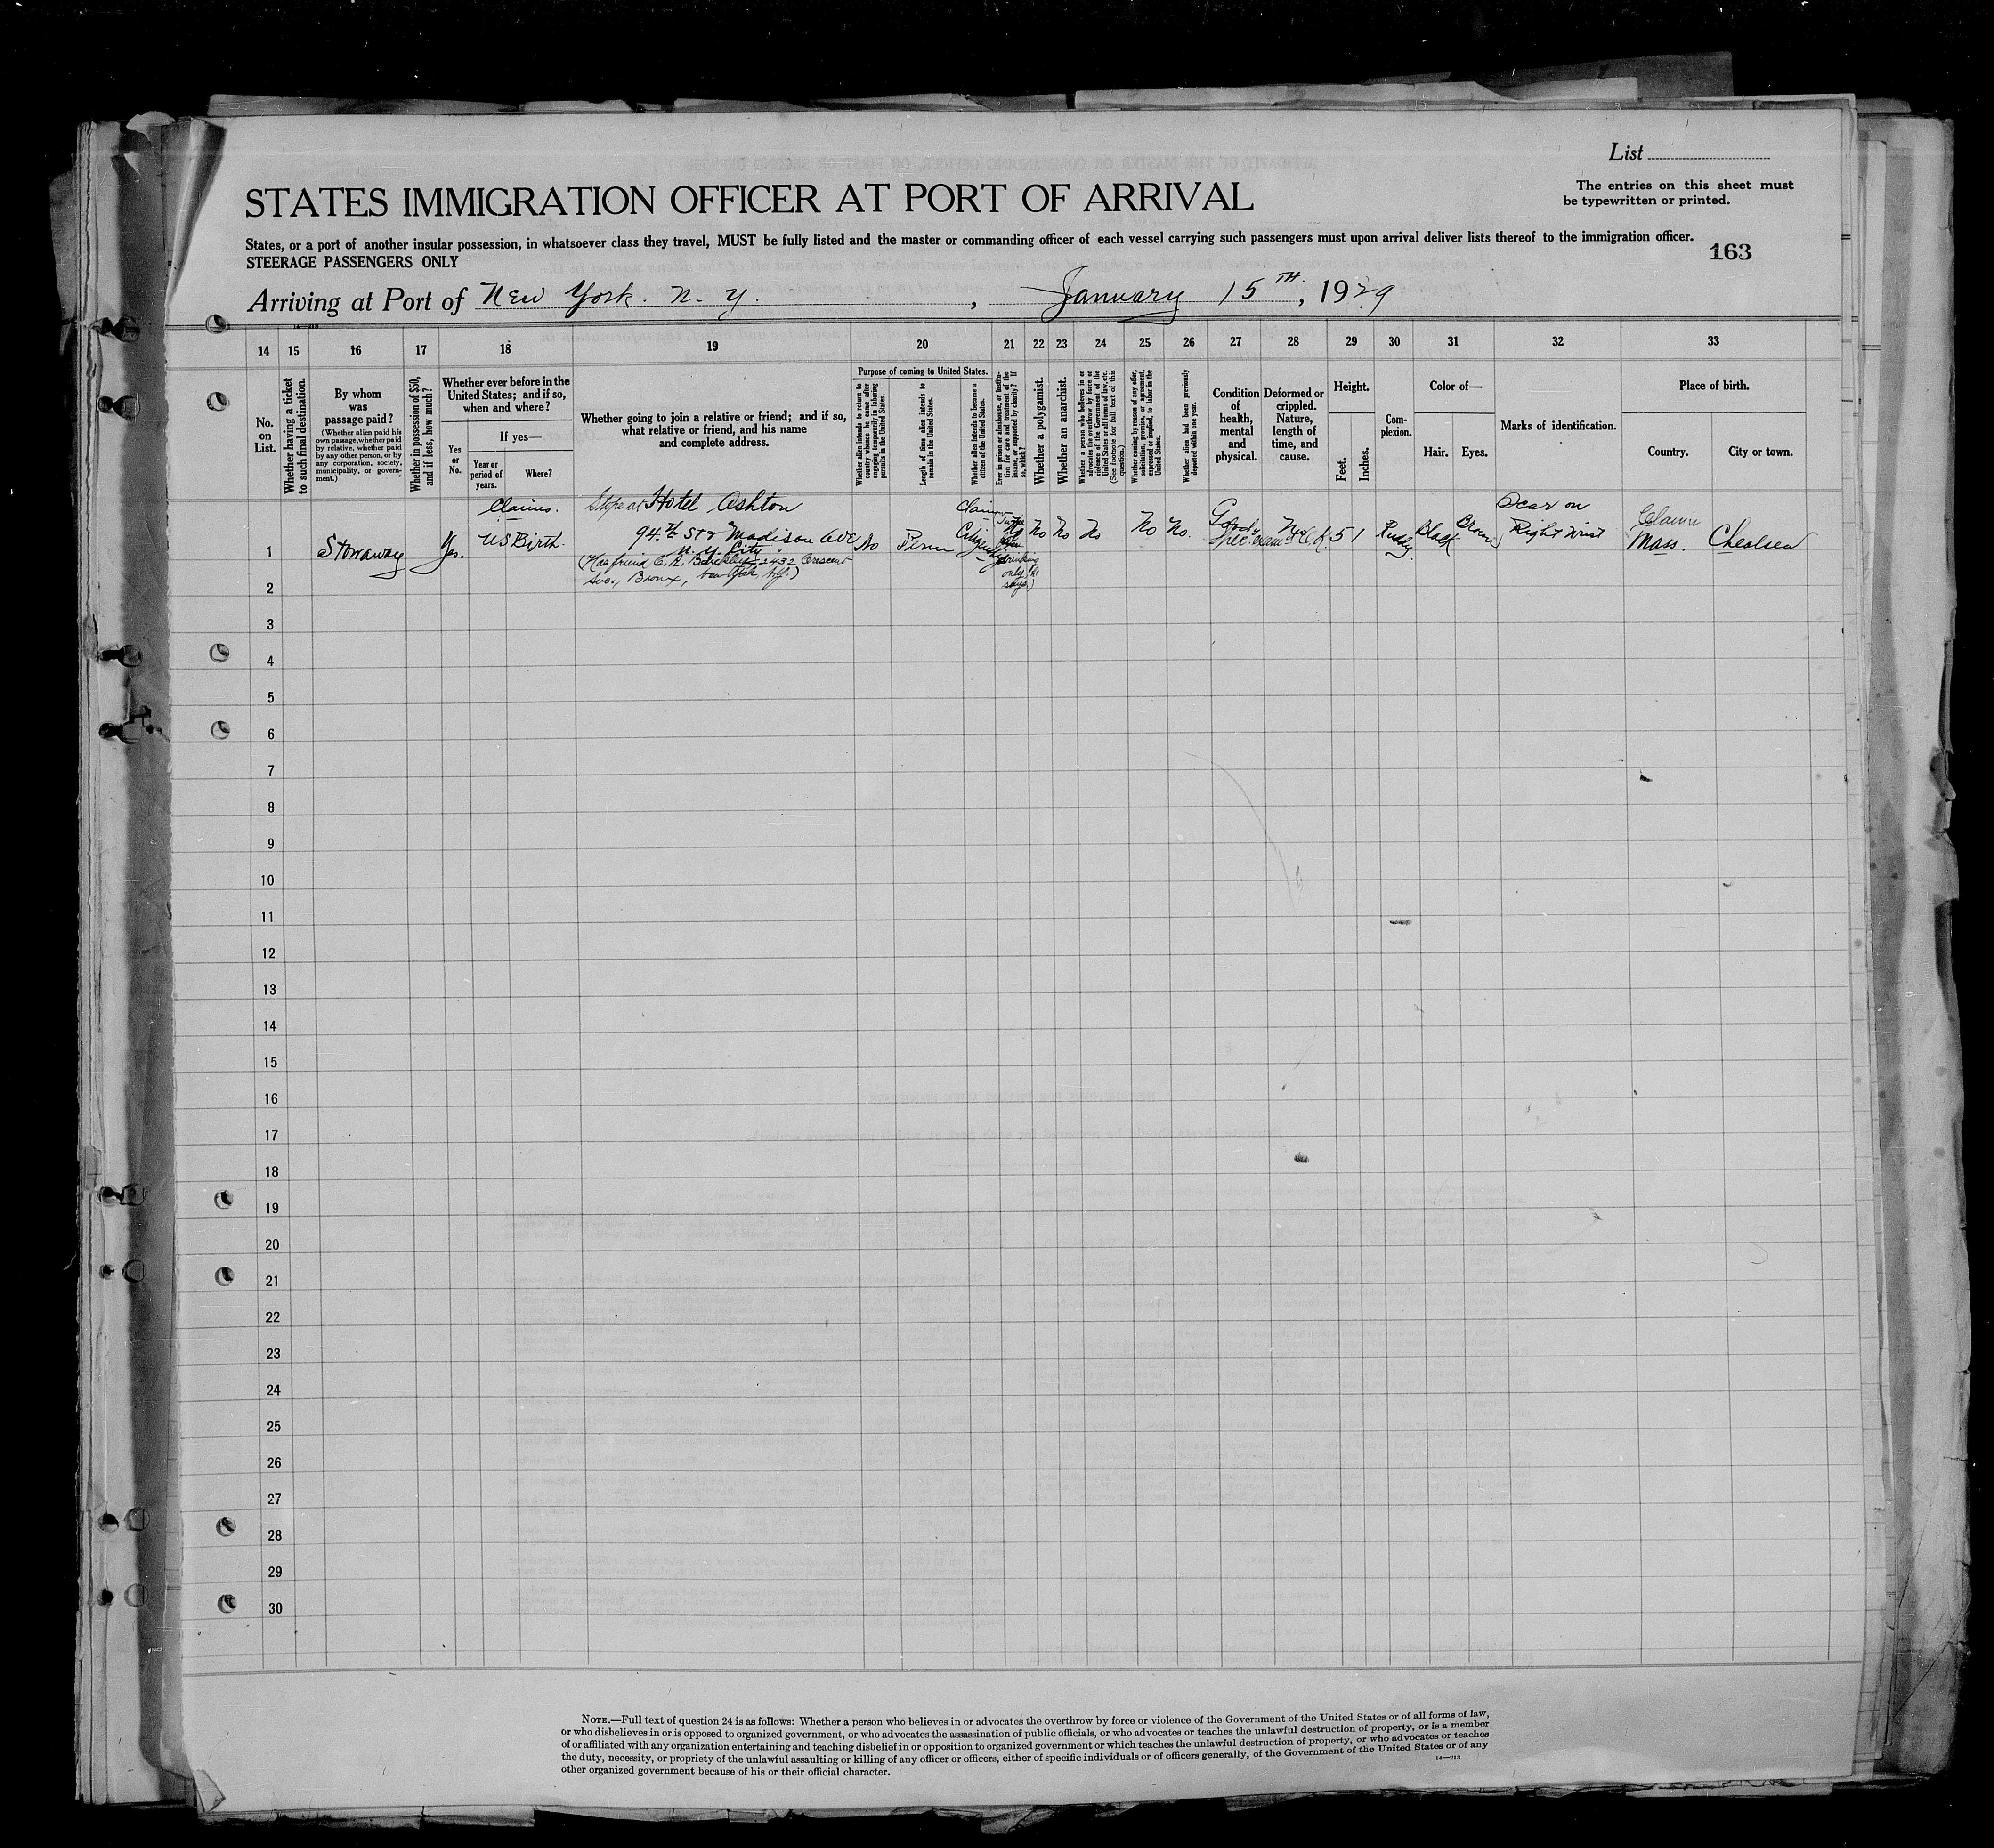 List
The entries on this sheet must
be typewritten or printed.
STATES IMMIGRATION OFFICER AT PORT OF ARRIVAL
States, or a port of another insular possession, in whatsoever class they travel, MUST be fully listed and the master or commanding officer of each vessel carrying such passengers must upon arrival deliver lists thereof to the immigration officer.
STEERAGE PASSENGERS ONLY
163
Arriving at Port of New York. N. Y. , January 15TH, 1929
14 15 16 17 18 19 20 21 22 23 24 25 26 27 28 29 30 31 32 33
No. on List.
Whether having a ticket to such final destination.
By whom was passage paid?
(Whether alien paid his own passage, whether paid by relative, whether paid by any other person, or by any corporation, society, municipality, or government.)
Whether in possession of $50, and if less, how much?
Whether ever before in the United States; and if so, when and where?
Yes or No.
If yes—
Year or period of years.
Where?
Whether going to join a relative or friend; and if so, what relative or friend, and his name and complete address.
Purpose of coming to United States.
Whether alien intends to return to country whence he came after engaging temporarily in laboring pursuits in the United States.
Length of time alien intends to remain in the United States.
Whether alien intends to become a citizen of the United States.
Ever in prison or almshouse, or institution for care and treatment of the insane, or supported by charity? If so, which?
Whether a polygamist.
Whether an anarchist.
Whether a person who believes in or advocates the overthrow by force or violence of the Government of the United States or all forms of law, etc. (See footnote for full text of this question.)
Whether coming by reason of any offer, solicitation, promise, or agreement, expressed or implied, to labor in the United States.
Whether alien had been previously deported within one year.
Condition of health, mental and physical.
Deformed or crippled. Nature, length of time, and cause.
Height.
Feet.
Inches.
Complexion.
Color of—
Hair.
Eyes.
Marks of identification.
Place of birth.
Country.
City or town.
Claims. Stops at Hotel Ashton Claims Good Scar on Claims
1 Stowaway Yes. US Birth. 94th St & Madison Ave No Perm Citizen No No No No No No. 5 1 Ruddy Black Brown Right Wrist Mass. Chealsea
N. Y. City.
(Has friend C. R. 2432 Crescent
Ave., Bronx, New York)
drinking
only he
says)
2
3
4
5
6
7
8
9
10
11
12
13
14
15
16
17
18
19
20
21
22
23
24
25
26
27
28
29
30
NOTE.—Full text of question 24 is as follows: Whether a person who believes in or advocates the overthrow by force or violence of the Government of the United States or of all forms of law,
or who disbelieves in or is opposed to organized government, or who advocates the assassination of public officials, or who advocates or teaches the unlawful destruction of property, or is a member
of or affiliated with any organization entertaining and teaching disbelief in or opposition to organized government or which teaches the unlawful destruction of property, or who advocates or teaches
the duty, necessity, or propriety of the unlawful assaulting or killing of any officer or officers, either of specific individuals or of officers generally, of the Government of the United States or of any
other organized government because of his or their official character.
14—213